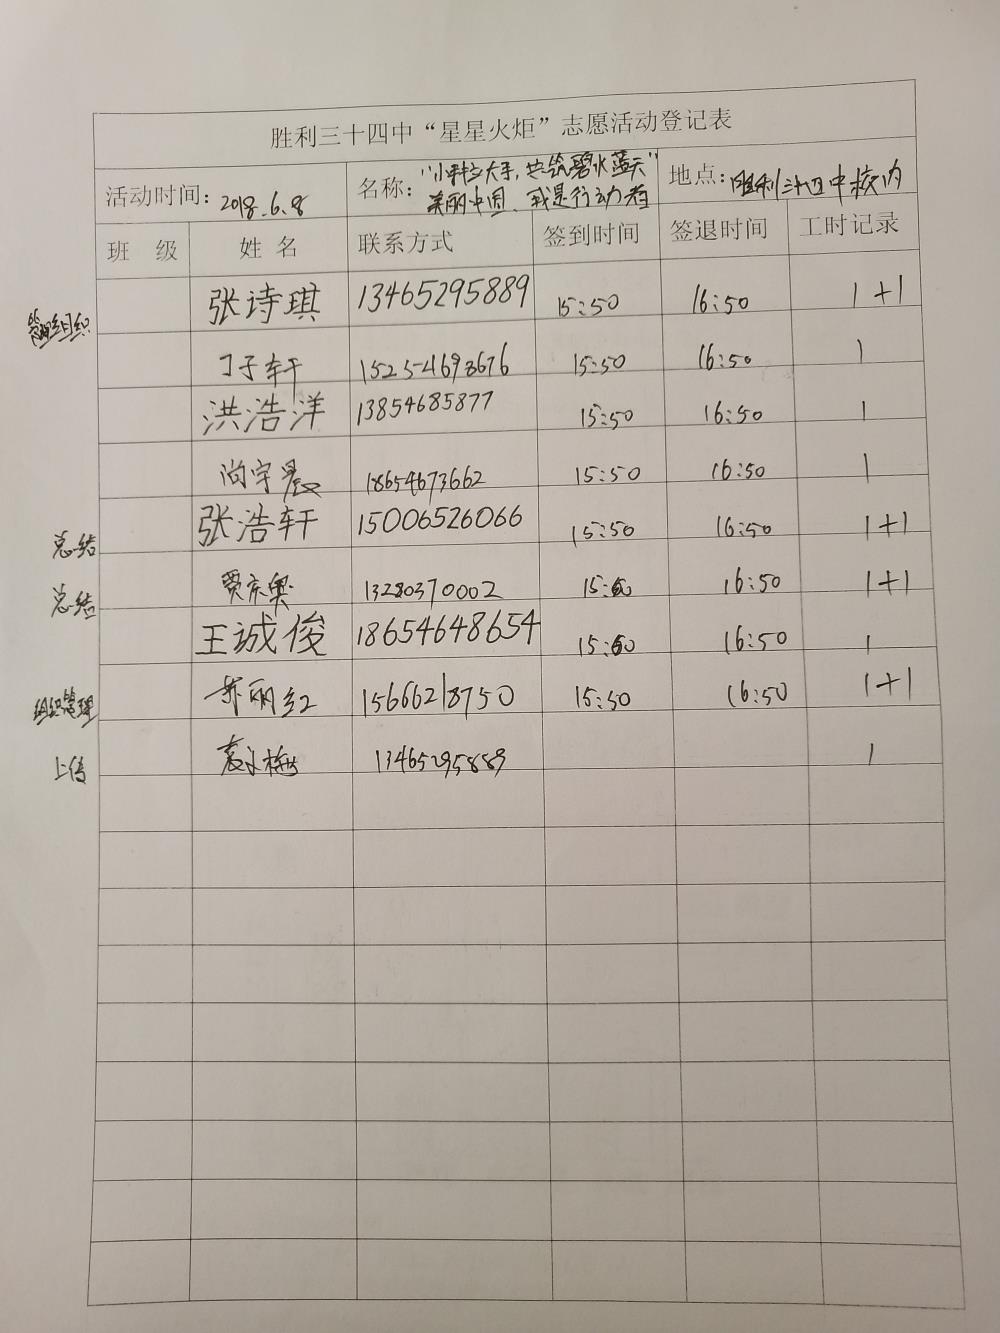 胜利三十四中“星星火炬”志愿活动登记表
活动时间：2018.6.8 名称：“小手拉大手，共筑碧水蓝天” 地点：胜利三十四中校内
美丽中国、我是行动者
班 级 姓 名 联系方式 签到时间 签退时间 工时记录
管理组织 张诗琪 13465295889 15:50 16:50 1+1
丁子轩 15254693676 15:50 16:50 1
洪浩洋 13854685877 15:50 16:50 1
尚宇晨 18654673662 15:50 16:50 1
总结 张浩轩 15006526066 15:50 16:50 1+1
总结 贾京奥 13280370002 15:50 16:50 1+1
王诚俊 18654648654 15:50 16:50 1
组织管理 丽红 15666218750 15:50 16:50 1+1
上传 袁小梅 13465295889 1